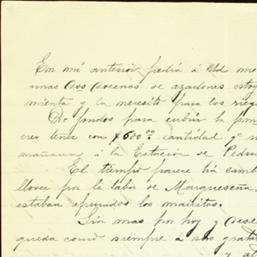 En mi anterior pedia á Ud. me
unas dos docenas de azadones estoy
mienta y la necesito para los rieg
De fondos para cubrir la
creo tener con $600.00 cantidad q
mañana á la Estacion de Pedri
El tiempo parece ha camb
llover por la labor de Margueseña,
estaban apurados los maicitos.
Sin mas por hoy y dese
queda como siempre á sus grat
y at